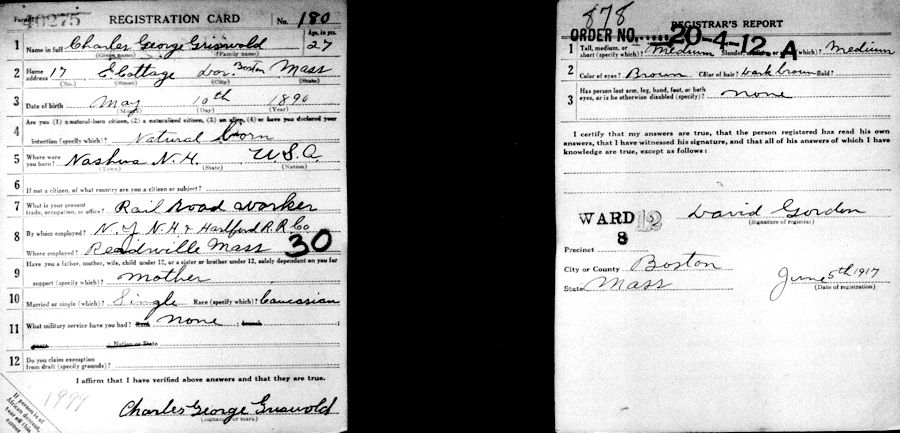 Form 1 40275 REGISTRATION CARD No. 180
1 Name in full Charles George Griswold Age, in yrs. 27
(Given name) (Family name)
2 Home address 17 E Cottage Dor. Boston Mass
(No.) (Street) (City) (State)
3 Date of birth May 10th 1890
(Month) (Day) (Year)
4 Are you (1) a natural-born citizen, (2) a naturalized citizen, (3) an alien, (4) or have you declared your
intention (specify which)? Natural born
5 Where were you born? Nashua N.H. U.S.A
(Town) (State) (Nation)
6 If not a citizen, of what country are you a citizen or subject?
7 What is your present trade, occupation, or office? Rail Road Worker
8 By whom employed? N.Y. N.H. & Hartford R.R. Co
Where employed? Readville Mass 30
9 Have you a father, mother, wife, child under 12, or a sister or brother under 12, solely dependent on you for
support (specify which)? Mother
10 Married or single (which)? Single Race (specify which)? Caucasian
11 What military service have you had? Rank None ; branch ;
years Nation or State
12 Do you claim exemption from draft (specify grounds)?
I affirm that I have verified above answers and that they are true.
Charles George Griswold
(Signature or mark)
If person is of
African descent,
tear off this
corner
878
REGISTRAR'S REPORT
ORDER NO. 20-4-12 A
1 Tall, medium, or short (specify which)? Medium Slender, medium, or stout (which)? Medium
2 Color of eyes? Brown Color of hair? Dark brown Bald?
3 Has person lost arm, leg, hand, foot, or both eyes, or is he otherwise disabled (specify)? None
I certify that my answers are true, that the person registered has read his own
answers, that I have witnessed his signature, and that all of his answers of which I have
knowledge are true, except as follows:
David Gordon
(Signature of registrar)
WARD 12
8
Precinct
City or County Boston
State Mass
June 5th 1917
(Date of registration)